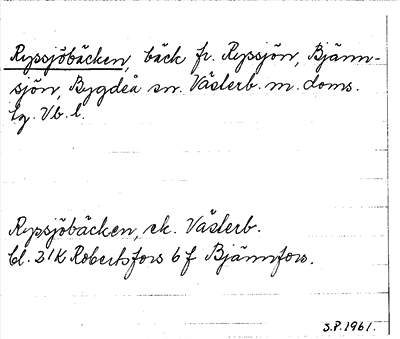 Rypsjöbäcken, bäck fr. Rypsjön, Bjänn-
sjön, Bygdeå sn. Västerb. m. doms.
lg. Vb. l.
Rypsjöbäcken, ek. Västerb.
bl. 21K Robertsfors 6 f Bjännfors.
S.P. 1961.